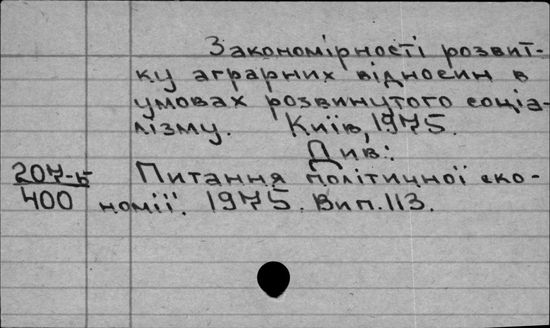 Закономірності розвит-
ку аграрних відносин в
умовах розвинутого соціа-
лізму. Київ, 1975.
Див:
207-Б Питання політичної еко-
400 номії. 1975. Вип. 113.